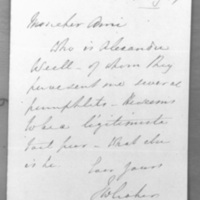 Mon cher Ami
Who is Alexandre
Weill - of whom they
have sent me several
pamphlets - He seems
to be a legitimiste
that
is he
Ever yours